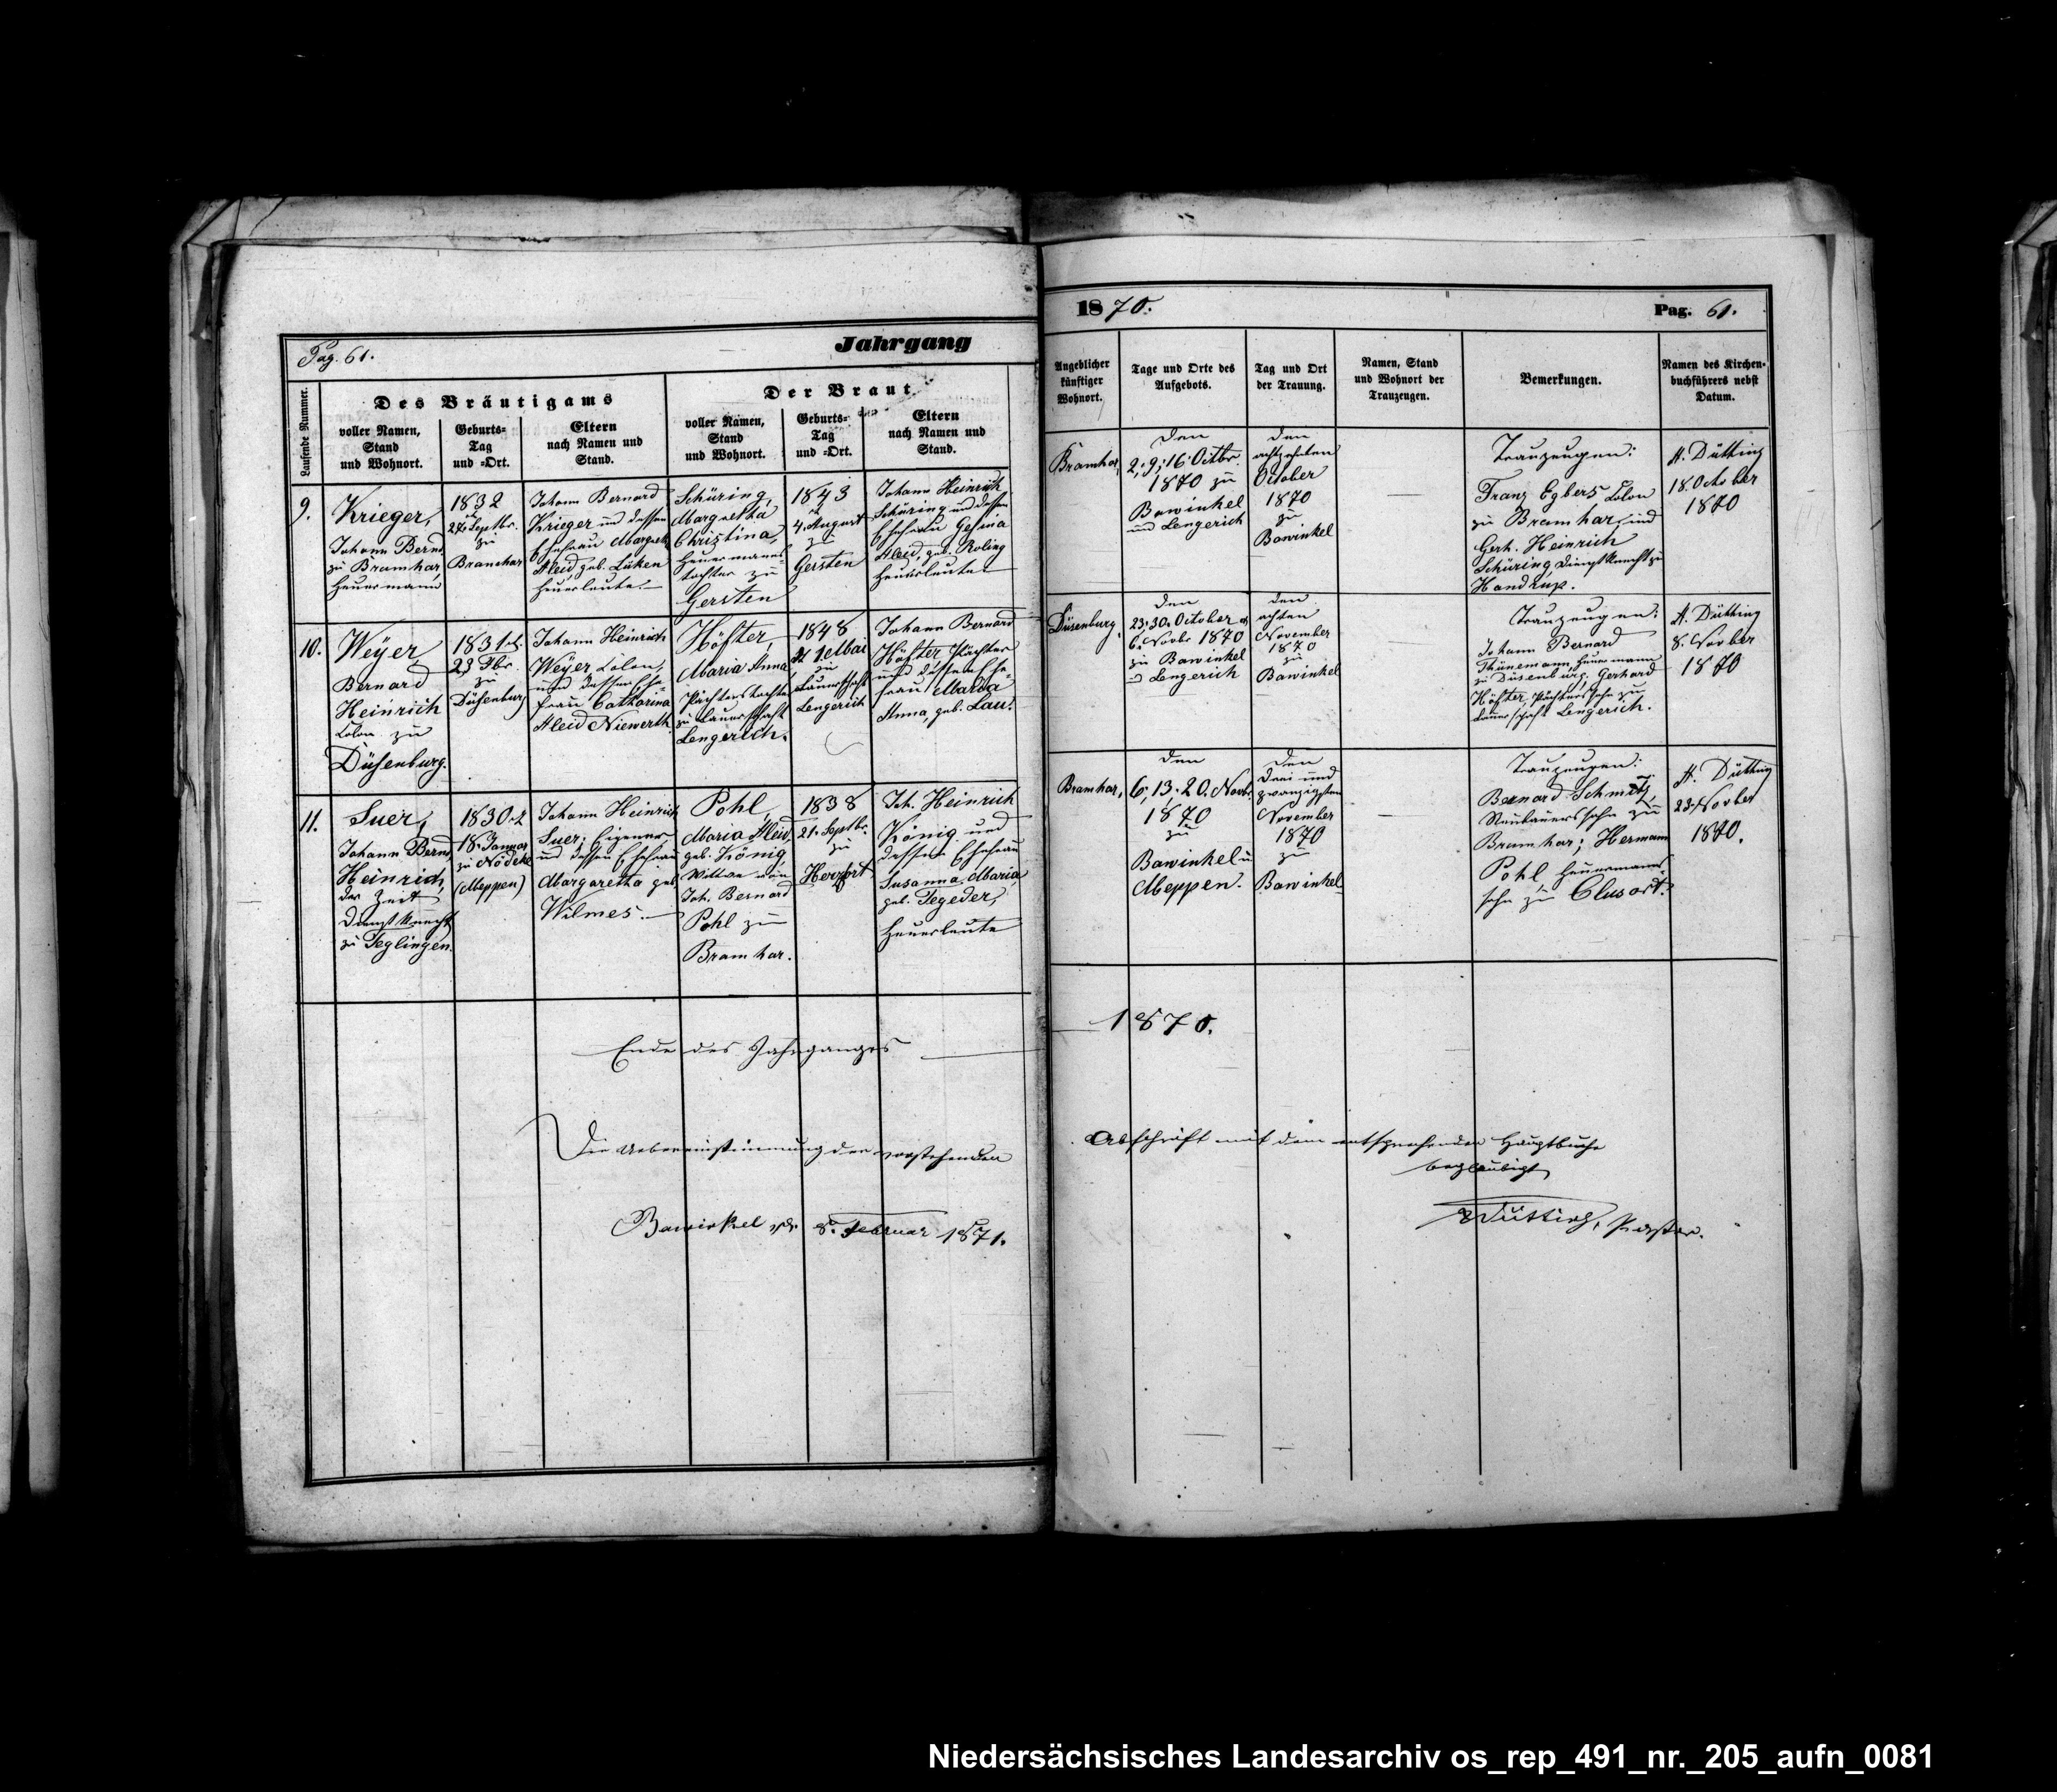 Pag. 61.
Jahrgang
1870.
Pag. 61.
Laufende Nummer.
Des Bräutigams
voller Namen,
Stand
und Wohnort.
Geburts-
Tag
und =Ort.
Eltern
nach Namen und
Stand.
Der Braut
voller Namen,
Stand
und Wohnort.
Geburts-
Tag
und =Ort.
Eltern
nach Namen und
Stand.
Angeblicher
künftiger
Wohnort.
Tage und Orte des
Aufgebots.
Tag und Ort
der Trauung.
Namen, Stand
und Wohnort der
Trauzeugen.
Bemerkungen.
Namen des Kirchen-
buchführers nebst
Datum.
9.
Krieger,
Johann Bernd
zu Bramhar,
Heuermann
1832
27. Septbr.
zu
Bramhar
Johann Bernard
Krieger und dessen
Ehefrau Margareth
Aleid, geb. Lüken
Heuerleute.
Schüring,
Margaretha
Christina,
Heuermanns-
tochter zu
Gersten
1843
4. August
zu
Gersten
Johann Heinrich
Schüring und dessen
Ehefrau Gesina
Aleid, geb. Roling
Heuerleute
Bramhar,
den
2; 9; 16. Octbr.
1870 zu
Bawinkel
und Lengerich
den
achtzehnten
October
1870
zu
Bawinkel
Trauzeugen:
Franz Egbers Colon
zu Bramhar, und
Gerh. Heinrich
Schüring, Dienstknecht zu
Handrup.
A. Dütting
18. October
1870
10.
Weÿer,
Bernard
Heinrich
Colon zu
Düsenburg.
1831
23
zu
Düsenburg
Johann Heinrich
Weyer Colon,
und dessen Ehe-
frau Catharina
Aleid Niewerth
Höfter,
Maria Anna
Pächterstochter
zu Bauerschaft
Lengerich.
1848
1. Mai
zu
Bauerschaft
Lengerich
Johann Bernard
Höfter Pächter
und dessen Ehe-
frau Maria
Anna, geb. Lau.
Düsenburg.
den
23; 30. October
6. Novbr 1870
zu Bawinkel
Lengerich
den
achten
November
1870
zu
Bawinkel
Trauzeugen:
Johann Bernard
Thünemann, Heuermann
zu Düsenburg; Gerhard
Höfter, Pächterssohn zu
Bauerschaft Lengerich.
A. Dütting
8. Novber
1870
11.
Suer,
Johann Bernd
Heinrich,
der Zeit
Dienstknecht
zu Teglingen.
1830
18. Januar
zu Nödeke
(Meppen)
Johann Heinrich
Suer, Eigener
und dessen Ehefrau
Margaretha geb.
Wilmes.
Pohl,
Maria Aleid
geb. König,
Wittwe von
Joh. Bernard
Pohl zu
Bramhar.
1838
21. Septbr.
zu
Joh. Heinrich
König und
dessen Ehefrau
Susanna Maria
geb. Tegeder,
Heuerleute
Bramhar,
den
6; 13; 20. Novbr.
1870
zu
Bawinkel u.
Meppen.
den
drei und
zwanzigsten
November
1870
zu
Bawinkel
Trauzeugen:
Bernard Schmitz,
Neubauerssohn zu
Bramhar; Hermann
Pohl Heuermanns-
sohn zu Clusort.
A. Dütting
23. Novber
1870.
Ende des Jahrganges
1870.
Die Uebereinstimmung der vorstehenden
Abschrift mit dem entsprechenden Hauptbuche
beglaubigt
Bawinkel 8. Februar 1871.
Dütting, Pastor.
Niedersächsisches Landesarchiv os_rep_491_nr._205_aufn_0081